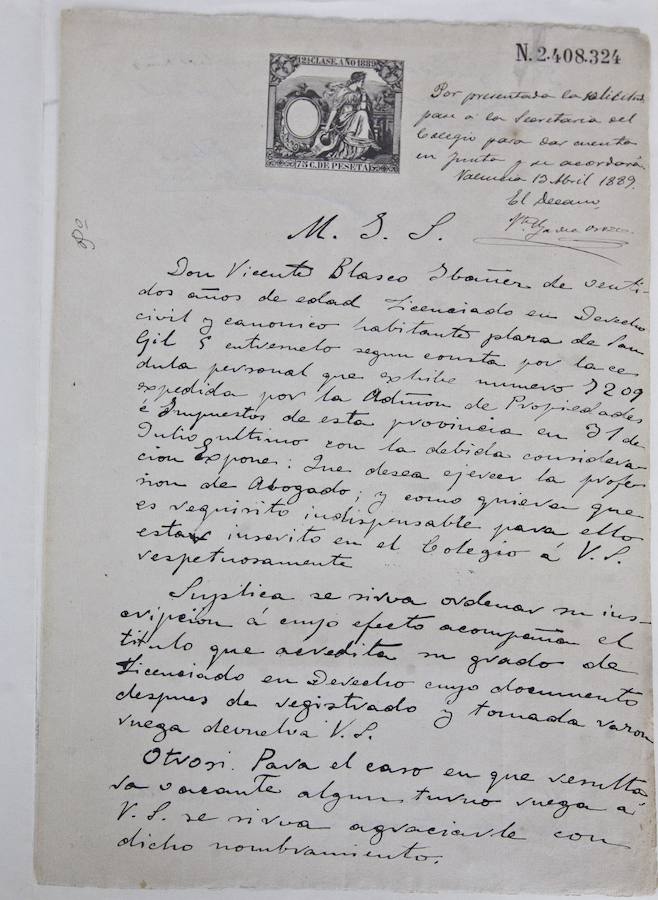 N. 2.408.324
12ª CLASE. AÑO 1889
75 C. DE PESETA
Por presentada la solicitud
pase á la Secretaria del
Colegio para dar cuenta
en Junta y se acordará
Valencia 13 Abril 1889.
El Decano,
M. I. S.
Don Vicente Blasco Ibañez de venti-
dos años de edad Licenciado en Derecho
civil y canonico habitante plaza de San
Gil 5 entresuelo segun consta por la ce
dula personal que exhibe numero 7209
expedida por la Admon de Propiedades
é Impuestos de esta provincia en 31 de
Julio ultimo con la debida considera
cion Expone: Que desea ejercer la profe
sion de Abogado; y como quiera que
es requisito indispensable para ello
estar inscrito en el Colegio á V. S.
respetuosamente
Suplica se sirva ordenar su ins-
cripcion á cuyo efecto acompaña el
titulo que acredita su grado de
Licenciado en Derecho cuyo documento
despues de registrado y tomada razon
ruega devuelva V. S.
Otrosi. Para el caso en que resulta
ra vacante algun turno ruega á
V. S. se sirva agraciarle con
dicho nombramiento.